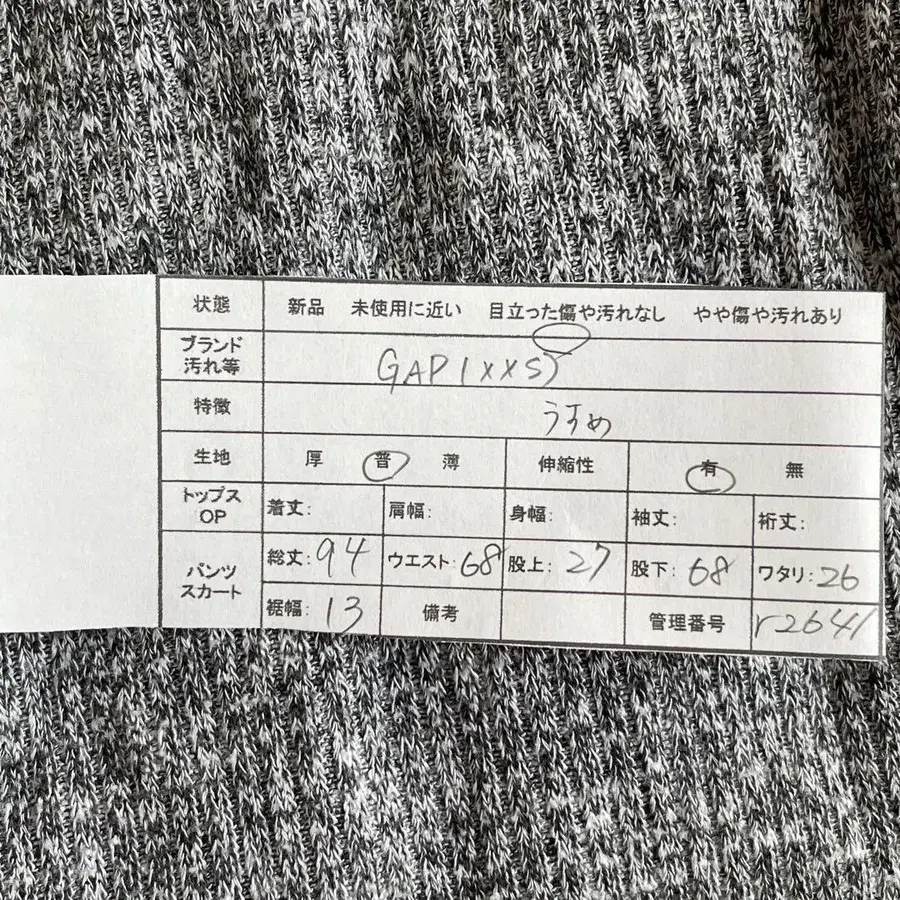 状態 新品 未使用に近い 目立った傷や汚れなし やや傷や汚れあり
ブランド
汚れ等 GAP (XXS)
特徴 うすめ
生地 厚 普 薄 伸縮性 有 無
トップス
OP 着丈: 肩幅: 身幅: 袖丈: 裄丈:
パンツ
スカート 総丈: 94 ウエスト: 68 股上: 27 股下: 68 ワタリ: 26
裾幅: 13 備考 管理番号 r2641